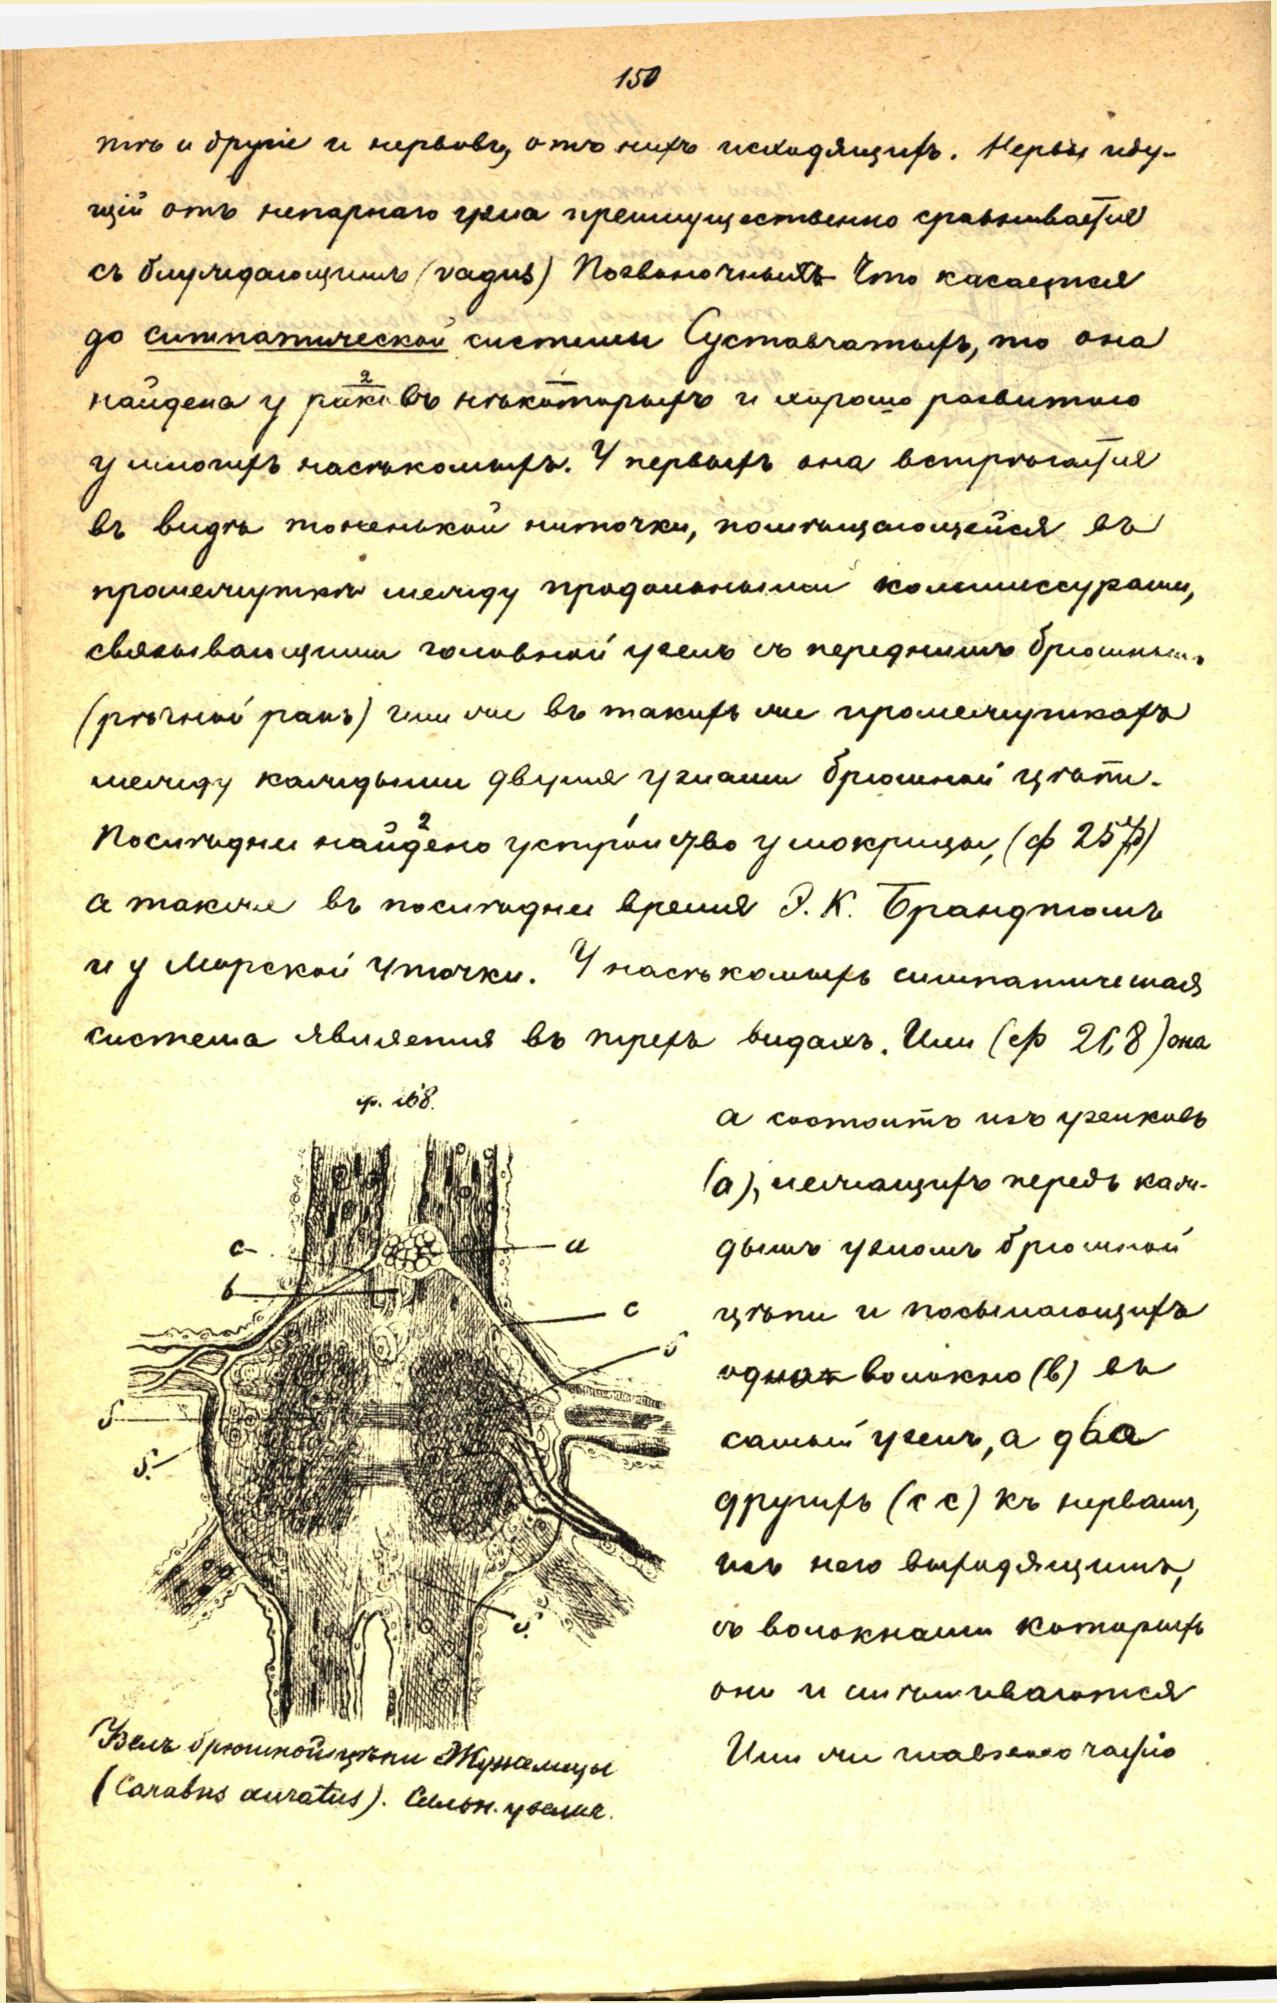 150
тѣ и другіе и нервовъ, отъ нихъ исходящихъ. Нервы иду-
щій отъ непарнаго узла преимущественно сравнивается
съ блуждающимъ (vagus) Позвоночныхъ Что касается
до симпатической системы Суставчатыхъ, то она
найдена у раковъ нѣкоторыхъ и хорошо развитого
у многихъ насѣкомыхъ. У первыхъ она встрѣчается
въ видѣ тоненькой ниточки, помѣщающейся въ
промежуткѣ между продольными коммиссурами,
связывающими головной узелъ съ переднимъ брюшнымъ
(рѣчной ракъ) или же въ такихъ же промежуткахъ
между каждыми двумя узлами брюшной цѣпи.
Послѣднее найдено устройство у мокрицы, (ф 257)
а также въ послѣднее время Э. К. Брандтомъ
и у Морской Уточки. У насѣкомыхъ симпатическая
система является въ трехъ видахъ. Или (ф 268) она
ф. 268.
а состоитъ изъ узелковъ
(а), лежащихъ передъ каж-
дымъ узломъ брюшной
цѣпи и посылающихъ
одно волокно (b) въ
самый узелъ, а два
другихъ (c c) къ нервамъ,
изъ него выходящимъ,
съ волокнами которыхъ
они и смѣшиваются
Или же главною частію
c
a
b
c
s
s
s.
s.
Узелъ брюшной цѣпи Жужелицы
(Carabus auratus). Сильн. увелич.